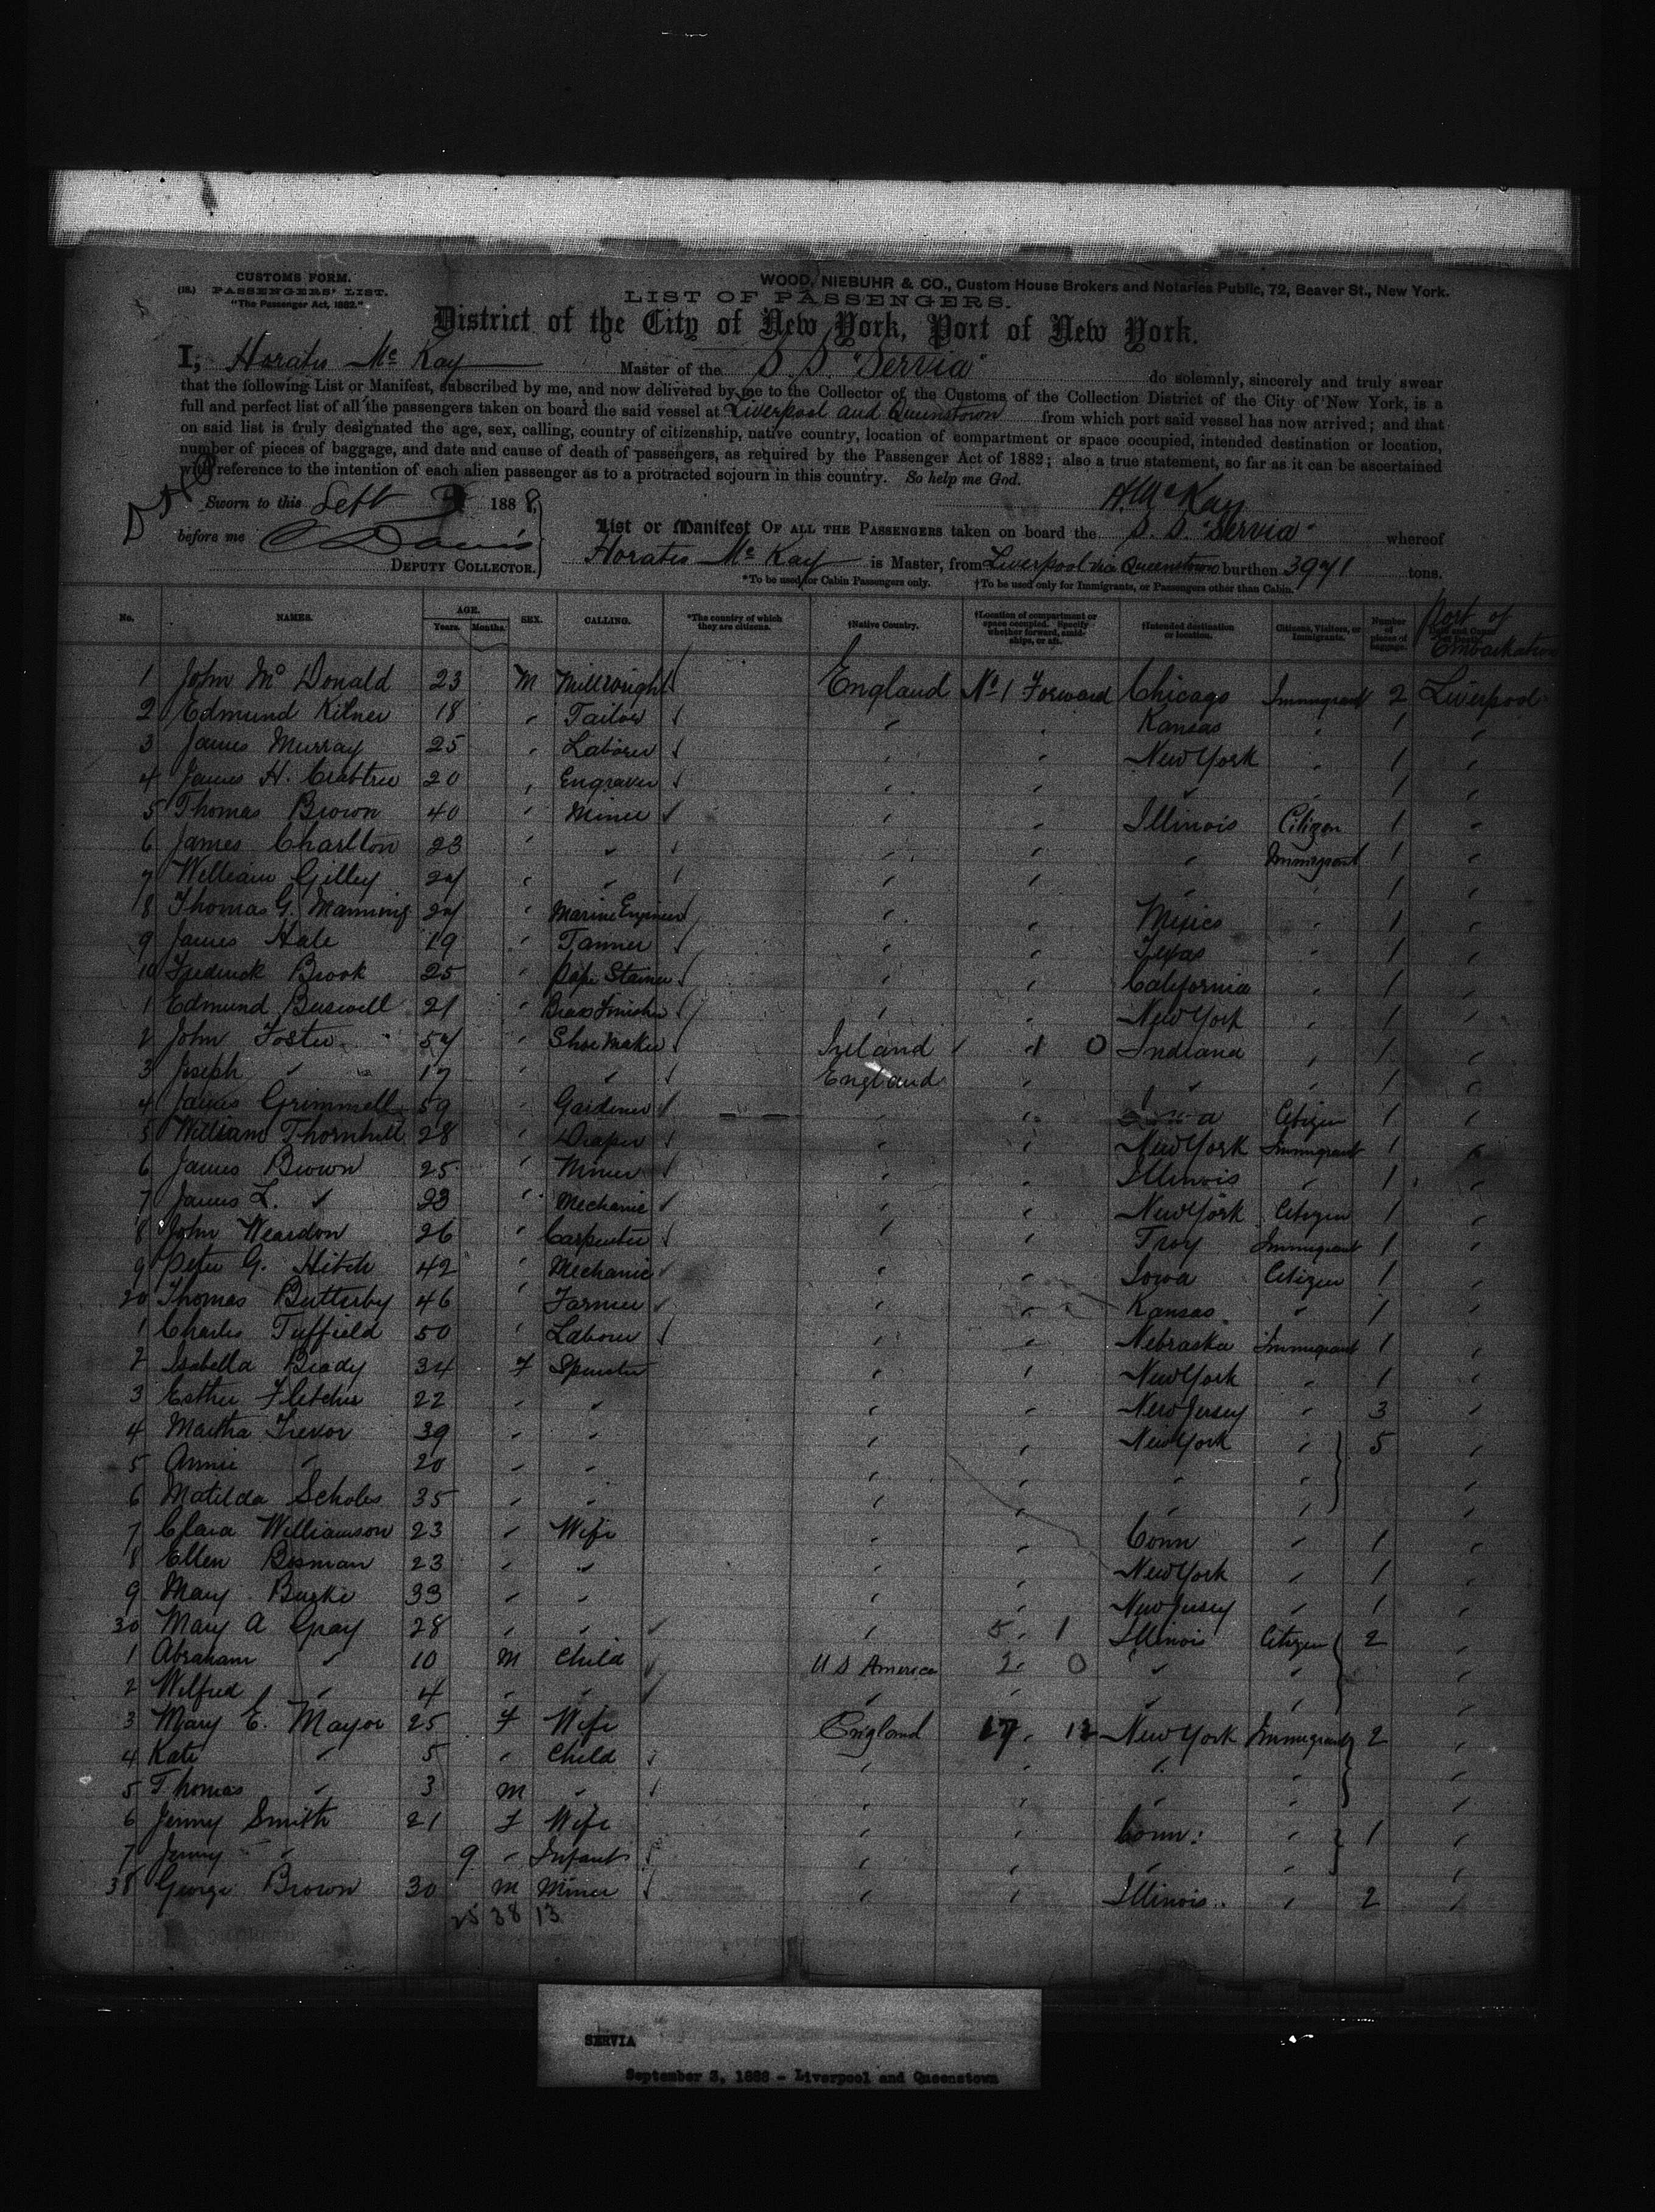 CUSTOMS FORM.
(18.) PASSENGERS' LIST.
"The Passenger Act, 1882."
WOOD, NIEBUHR & CO., Custom House Brokers and Notaries Public, 72, Beaver St., New York.
LIST OF PASSENGERS.
District of the City of New York, Port of New York.
I, Horatio Mc Kay Master of the S. S. "Servia" do solemnly, sincerely and truly swear
that the following List or Manifest, subscribed by me, and now delivered by me to the Collector of the Customs of the Collection District of the City of New York, is a
full and perfect list of all the passengers taken on board the said vessel at Liverpool and Queenstown from which port said vessel has now arrived; and that
on said list is truly designated the age, sex, calling, country of citizenship, native country, location of compartment or space occupied, intended destination or location,
number of pieces of baggage, and date and cause of death of passengers, as required by the Passenger Act of 1882; also a true statement, so far as it can be ascertained
with reference to the intention of each alien passenger as to a protracted sojourn in this country. So help me God.
Sworn to this Sept 3 1888, H. McKay
before me Davis
DEPUTY COLLECTOR.
List or Manifest OF ALL THE PASSENGERS taken on board the S. S. "Servia" whereof
Horatio Mc Kay is Master, from Liverpool via Queenstown burthen 3971 tons.
*To be used for Cabin Passengers only. †To be used only for Immigrants, or Passengers other than Cabin.
No. NAMES. AGE. Years. Months. SEX. CALLING. *The country of which they are citizens. †Native Country. †Location of compartment or space occupied. Specify whether forward, amidships, or aft. †Intended destination or location. Citizens, Visitors, or Immigrants. Number of pieces of baggage. Port of Embarkation
1 John Mc Donald 23 M Millwright England No 1 Forward Chicago Immigrant 2 Liverpool
2 Edmund Kilner 18 " Tailor " " Kansas " 1 "
3 James Murray 25 " Laborer " " New York " 1 "
4 James H. Crabtree 20 " Engraver " " " " 1 "
5 Thomas Brown 40 " Miner " " Illinois Citizen 1 "
6 James Charlton 23 " " " " " Immigrant 1 "
7 William Gilley 27 " " " " " " 1 "
8 Thomas G. Manning 27 " Marine Engineer " " Mexico " 1 "
9 James Hale 19 " Tanner " " Texas " 1 "
10 Frederick Brook 25 " Stainer " " California " 1 "
1 Edmund Buswell 21 " Brass Finisher " " New York " 1 "
2 John Foster 57 " Shoe Maker Ireland 1 0 Indiana " 1 "
3 Joseph " 17 " " England " " " 1 "
4 James Grimmell 59 " Gardener " " Citizen 1 "
5 William Thornhill 28 " Draper " " New York Immigrant 1 "
6 James Brown 25 " Miner " " Illinois " 1 "
7 James L. " 23 " Mechanic " " New York Citizen 1 "
8 John Weardon 26 " Carpenter " " Troy Immigrant 1 "
9 Peter G. Hitch 42 " Mechanic " " Iowa Citizen 1 "
20 Thomas Butterby 46 " Farmer " " Kansas " 1 "
1 Charles Tuffield 50 " Laborer " " Nebraska Immigrant 1 "
2 Isabella Brady 34 F Spinster " " New York " 1 "
3 Esther Fletcher 22 " " " " New Jersey " 3 "
4 Martha Trevor 39 " " " " New York " 5 "
5 Annie " 20 " " " " " " "
6 Matilda Scholes 35 " " " " " " "
7 Clara Williamson 23 " Wife " " Conn " 1 "
8 Ellen Bosman 23 " " " " New York " 1 "
9 Mary Burke 33 " " " " New Jersey " 1 "
30 Mary A Gray 28 " " " 5 1 Illinois Citizen 2 "
1 Abraham " 10 M Child U S America 2 0 " " "
2 Wilfred " 4 " " " " " " "
3 Mary E. Mayor 25 F Wife England 17 12 New York Immigrant 2 "
4 Kate " 5 " Child " " " " "
5 Thomas " 3 M " " " " " "
6 Jenny Smith 21 F Wife " " Conn: " 1 "
7 Jenny " 9 " Infant " " " " "
38 George Brown 30 M Miner " " Illinois " 2 "
25 38 13
SERVIA
September 3, 1888 - Liverpool and Queenstown